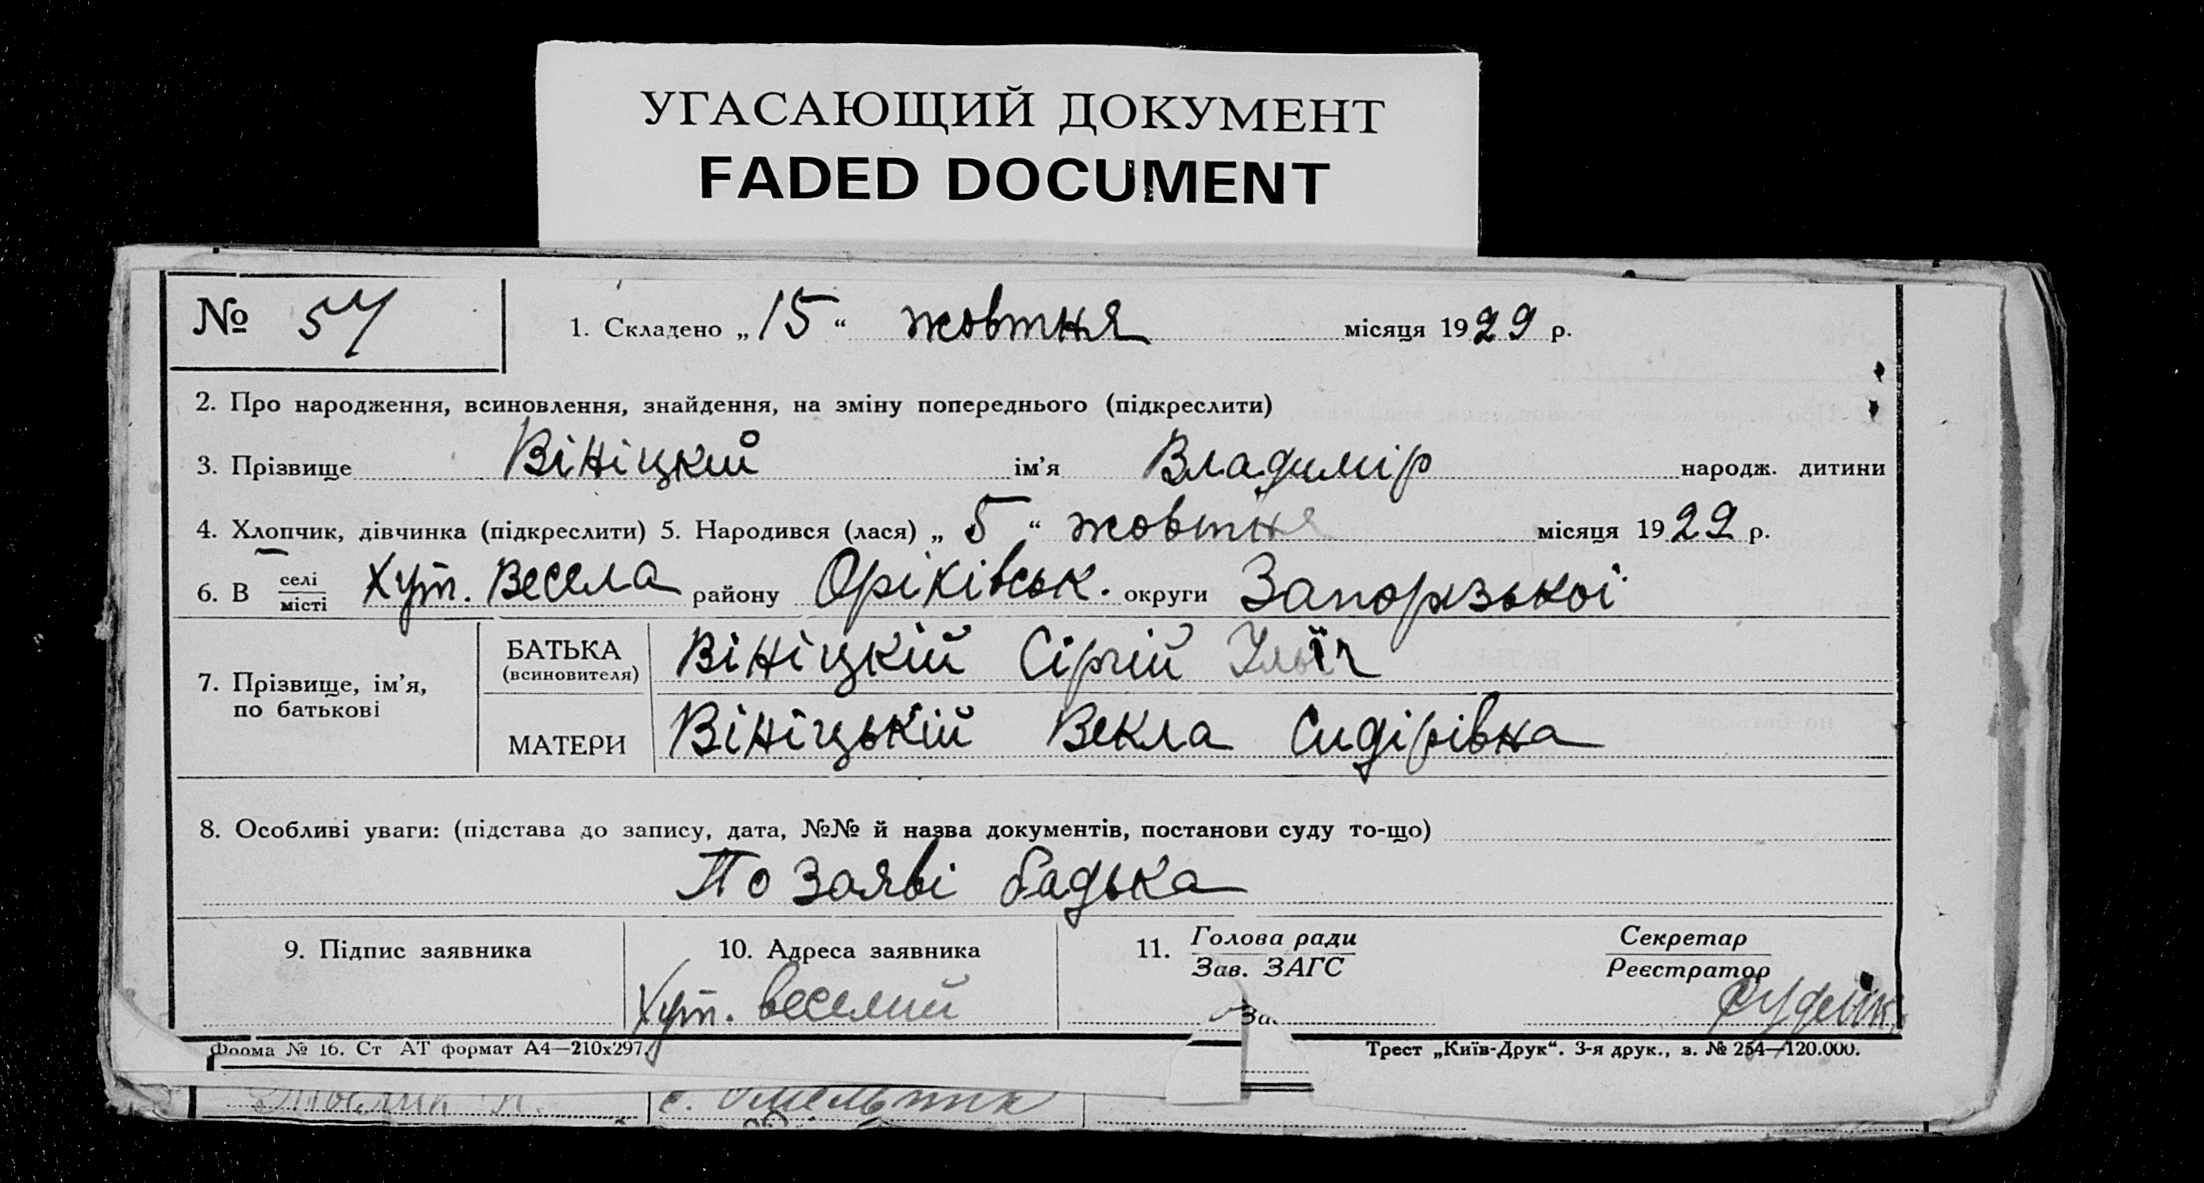 УГАСАЮЩИЙ ДОКУМЕНТ
FADED DOCUMENT
№ 57
1. Складено „15“ жовтня місяця 1929 р.
2. Про народження, всиновлення, знайдення, на зміну попереднього (підкреслити)
3. Прізвище Вініцкий ім'я Владимір народж. дитини
4. Хлопчик, дівчинка (підкреслити) 5. Народився (лася) „5“ жовтня місяця 1929 р.
6. В селі місті Хут. Весела району Оріхівськ. округи Запорзької
7. Прізвище, ім'я, по батькові
БАТЬКА (всиновителя) Вініцкій Сіргій Ульїч
МАТЕРИ Вініцькій Векла Сидірівна
8. Особливі уваги: (підстава до запису, дата, №№ й назва документів, постанови суду то-що)
По заяві бадька
9. Підпис заявника
10. Адреса заявника
Хут. веселий
11. Голова ради Зав. ЗАГС
Секретар Реєстратор
За.
Форма № 16. Ст АТ формат А4—210х297.
Трест „Київ-Друк“. 3-я друк., з. № 254—120.000.
с. Омельник